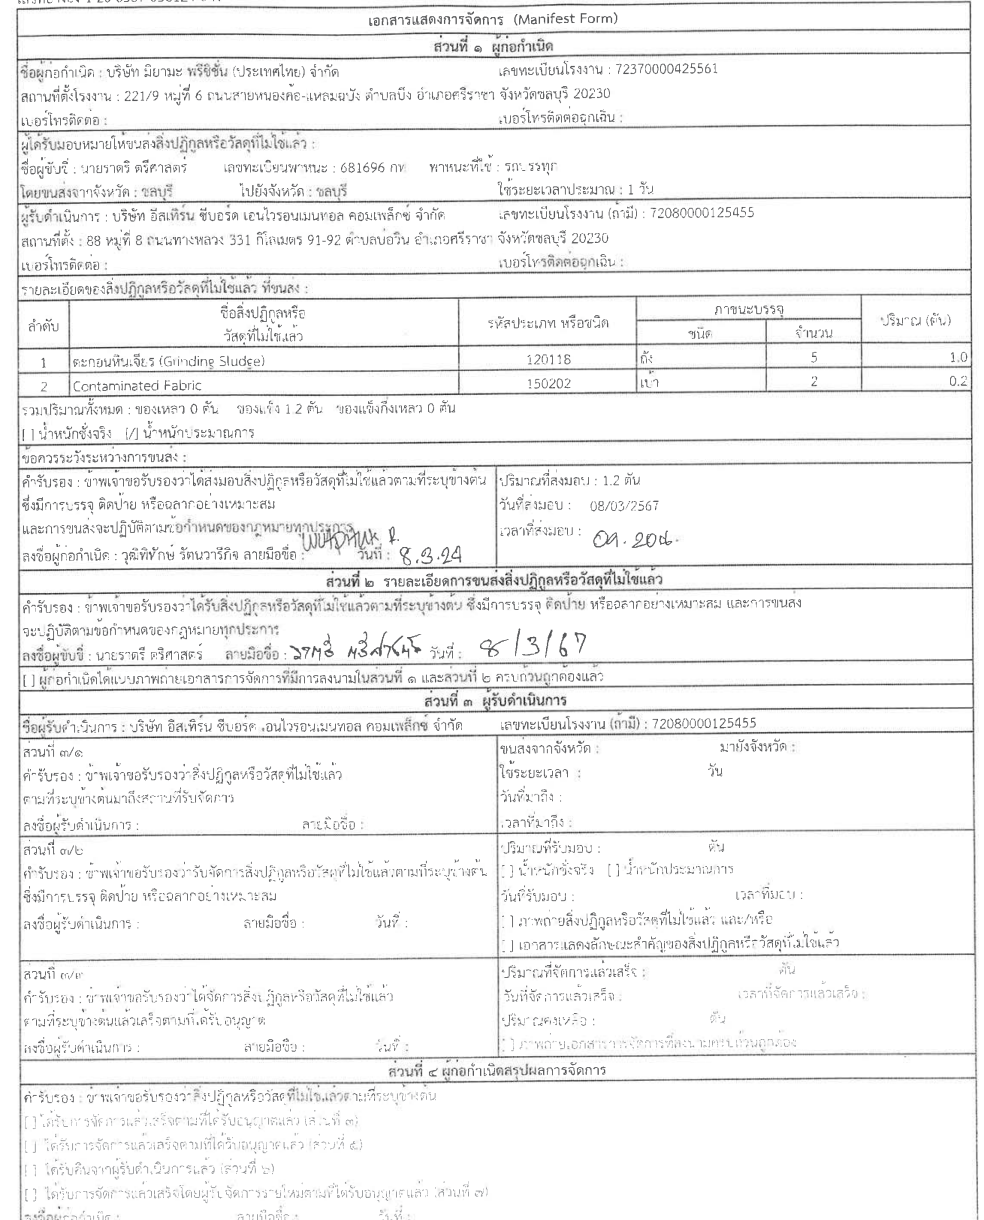 เอกสารแสดงการจัดการ (Manifest Form)
ส่วนที่ ๑ ผู้ก่อกำเนิด
ชื่อผู้ก่อกำเนิด : บริษัท มิยามะ พรีซิชั่น (ประเทศไทย) จำกัด เลขทะเบียนโรงงาน : 72370000425561
สถานที่ตั้งโรงงาน : 221/9 หมู่ที่ 6 ถนนสายหนองค้อ-แหลมฉบัง ตำบลบึง อำเภอศรีราชา จังหวัดชลบุรี 20230
เบอร์โทรติดต่อ : เบอร์โทรติดต่อฉุกเฉิน :
ผู้ได้รับมอบหมายให้ขนส่งสิ่งปฏิกูลหรือวัสดุที่ไม่ใช้แล้ว :
ชื่อผู้ขับขี่ : นายราตรี ตรีศาสตร์ เลขทะเบียนพาหนะ : 681696 กท พาหนะที่ใช้ : รถบรรทุก
โดยขนส่งจากจังหวัด : ชลบุรี ไปยังจังหวัด : ชลบุรี ใช้ระยะเวลาประมาณ : 1 วัน
ผู้รับดำเนินการ : บริษัท อีสเทิร์น ซีบอร์ด เอนไวรอนเมนทอล คอมเพล็กซ์ จำกัด เลขทะเบียนโรงงาน (ถ้ามี) : 72080000125455
สถานที่ตั้ง : 88 หมู่ที่ 8 ถนนทางหลวง 331 กิโลเมตร 91-92 ตำบลบ่อวิน อำเภอศรีราชา จังหวัดชลบุรี 20230
เบอร์โทรติดต่อ : เบอร์โทรติดต่อฉุกเฉิน :
รายละเอียดของสิ่งปฏิกูลหรือวัสดุที่ไม่ใช้แล้ว ที่ขนส่ง :
ลำดับ ชื่อสิ่งปฏิกูลหรือ วัสดุที่ไม่ใช้แล้ว รหัสประเภท หรือชนิด ภาชนะบรรจุ ชนิด จำนวน ปริมาณ (ตัน)
1 ตะกอนหินเจียร (Grinding Sludge) 120118 ถัง 5 1.0
2 Contaminated Fabric 150202 เบ้า 2 0.2
รวมปริมาณทั้งหมด : ของเหลว 0 ตัน ของแข็ง 1.2 ตัน ของแข็งกึ่งเหลว 0 ตัน
[ ] น้ำหนักชั่งจริง [/] น้ำหนักประมาณการ
ข้อควรระวังระหว่างการขนส่ง :
คำรับรอง : ข้าพเจ้าขอรับรองว่าได้ส่งมอบสิ่งปฏิกูลหรือวัสดุที่ไม่ใช้แล้วตามที่ระบุข้างต้น ปริมาณที่ส่งมอบ : 1.2 ตัน
ซึ่งมีการบรรจุ ติดป้าย หรือฉลากอย่างเหมาะสม วันที่ส่งมอบ : 08/03/2567
และการขนส่งจะปฏิบัติตามข้อกำหนดของกฎหมายทุกประการ เวลาที่ส่งมอบ : 09.20น.
ลงชื่อผู้ก่อกำเนิด : วุฒิพิทักษ์ รัตนวารีกิจ ลายมือชื่อ : วันที่ : 8.3.24
ส่วนที่ ๒ รายละเอียดการขนส่งสิ่งปฏิกูลหรือวัสดุที่ไม่ใช้แล้ว
คำรับรอง : ข้าพเจ้าขอรับรองว่าได้รับสิ่งปฏิกูลหรือวัสดุที่ไม่ใช้แล้วตามที่ระบุข้างต้น ซึ่งมีการบรรจุ ติดป้าย หรือฉลากอย่างเหมาะสม และการขนส่ง
จะปฏิบัติตามข้อกำหนดของกฎหมายทุกประการ
ลงชื่อผู้ขับขี่ : นายราตรี ตรีศาสตร์ ลายมือชื่อ : ราตรี ตรีศาสตร์ วันที่ : 8/3/67
[ ] ผู้ก่อกำเนิดได้แนบภาพถ่ายเอกสารการจัดการที่มีการลงนามในส่วนที่ ๑ และส่วนที่ ๒ ครบถ้วนถูกต้องแล้ว
ส่วนที่ ๓ ผู้รับดำเนินการ
ชื่อผู้รับดำเนินการ : บริษัท อีสเทิร์น ซีบอร์ด เอนไวรอนเมนทอล คอมเพล็กซ์ จำกัด เลขทะเบียนโรงงาน (ถ้ามี) : 72080000125455
ส่วนที่ ๓/๑ ขนส่งจากจังหวัด : มายังจังหวัด :
คำรับรอง : ข้าพเจ้าขอรับรองว่าสิ่งปฏิกูลหรือวัสดุที่ไม่ใช้แล้ว ใช้ระยะเวลา : วัน
ตามที่ระบุข้างต้นมาถึงสถานที่รับจัดการ วันที่มาถึง :
ลงชื่อผู้รับดำเนินการ : ลายมือชื่อ : เวลาที่มาถึง :
ส่วนที่ ๓/๒ ปริมาณที่รับมอบ : ตัน
คำรับรอง : ข้าพเจ้าขอรับรองว่ารับจัดการสิ่งปฏิกูลหรือวัสดุที่ไม่ใช้แล้วตามที่ระบุข้างต้น [ ] น้ำหนักชั่งจริง [ ] น้ำหนักประมาณการ
ซึ่งมีการบรรจุ ติดป้าย หรือฉลากอย่างเหมาะสม วันที่รับมอบ : เวลาที่มอบ :
ลงชื่อผู้รับดำเนินการ : ลายมือชื่อ : วันที่ : [ ] ภาพถ่ายสิ่งปฏิกูลหรือวัสดุที่ไม่ใช้แล้ว และ/หรือ
[ ] เอกสารแสดงลักษณะสำคัญของสิ่งปฏิกูลหรือวัสดุที่ไม่ใช้แล้ว
ส่วนที่ ๓/๓ ปริมาณที่จัดการแล้วเสร็จ : ตัน
คำรับรอง : ข้าพเจ้าขอรับรองว่าได้จัดการสิ่งปฏิกูลหรือวัสดุที่ไม่ใช้แล้ว วันที่จัดการแล้วเสร็จ : เวลาที่จัดการแล้วเสร็จ :
ตามที่ระบุข้างต้นแล้วเสร็จตามที่ได้รับอนุญาต ปริมาณคงเหลือ : ตัน
ลงชื่อผู้รับดำเนินการ : ลายมือชื่อ : วันที่ : [ ] ภาพถ่ายเอกสารการจัดการที่ลงนามครบถ้วนถูกต้อง
ส่วนที่ ๔ ผู้ก่อกำเนิดสรุปผลการจัดการ
คำรับรอง : ข้าพเจ้าขอรับรองว่าสิ่งปฏิกูลหรือวัสดุที่ไม่ใช้แล้วตามที่ระบุข้างต้น
[ ] ได้รับการจัดการแล้วเสร็จตามที่ได้รับอนุญาตแล้ว (ส่วนที่ ๓)
[ ] ได้รับการจัดการแล้วเสร็จตามที่ได้รับอนุญาตแล้ว (ส่วนที่ ๕)
[ ] ได้รับคืนจากผู้รับดำเนินการแล้ว (ส่วนที่ ๖)
[ ] ได้รับการจัดการแล้วเสร็จโดยผู้รับจัดการรายใหม่ตามที่ได้รับอนุญาตแล้ว (ส่วนที่ ๗)
ลงชื่อผู้ก่อกำเนิด : ลายมือชื่อ : วันที่ :